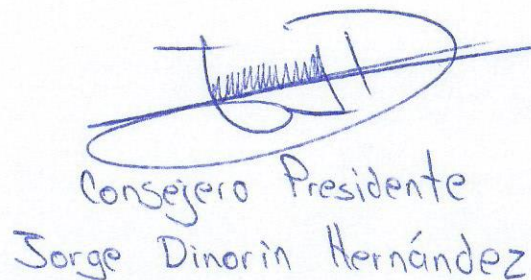 Consejero Presidente
Jorge Dinorin Hernández